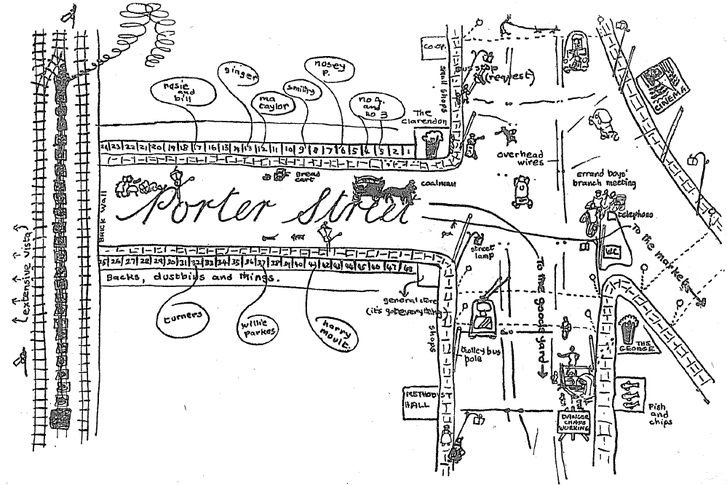 CO-OP.
small shops
bus stop
(request)
CINEMA
rosie
and
bill
ginger
ma
taylor
smithy
nosey
p.
no 9.
and
no 3
The
Clarendon
24 23 22 21 20 19 18 17 16 15 14 13 12 11 10 9 8 7 6 5 4 3 2 1
overhead
wires
errand boys'
branch meeting
telephone
WC
Bread
cart
coalman
Porter Street
BRICK WALL
(extensive vista)
street
lamp
To the markets
To the goods yard
25 26 27 28 29 30 31 32 33 34 35 36 37 38 39 40 41 42 43 44 45 46 47 48
Backs, dustbins and things.
general store
(it's got everything)
turners
willie
parkes
harry
moult
shops
trolley bus
pole
THE
GEORGE
METHODIST
HALL
DANGER
CHAPS
WORKING
Fish
and
chips